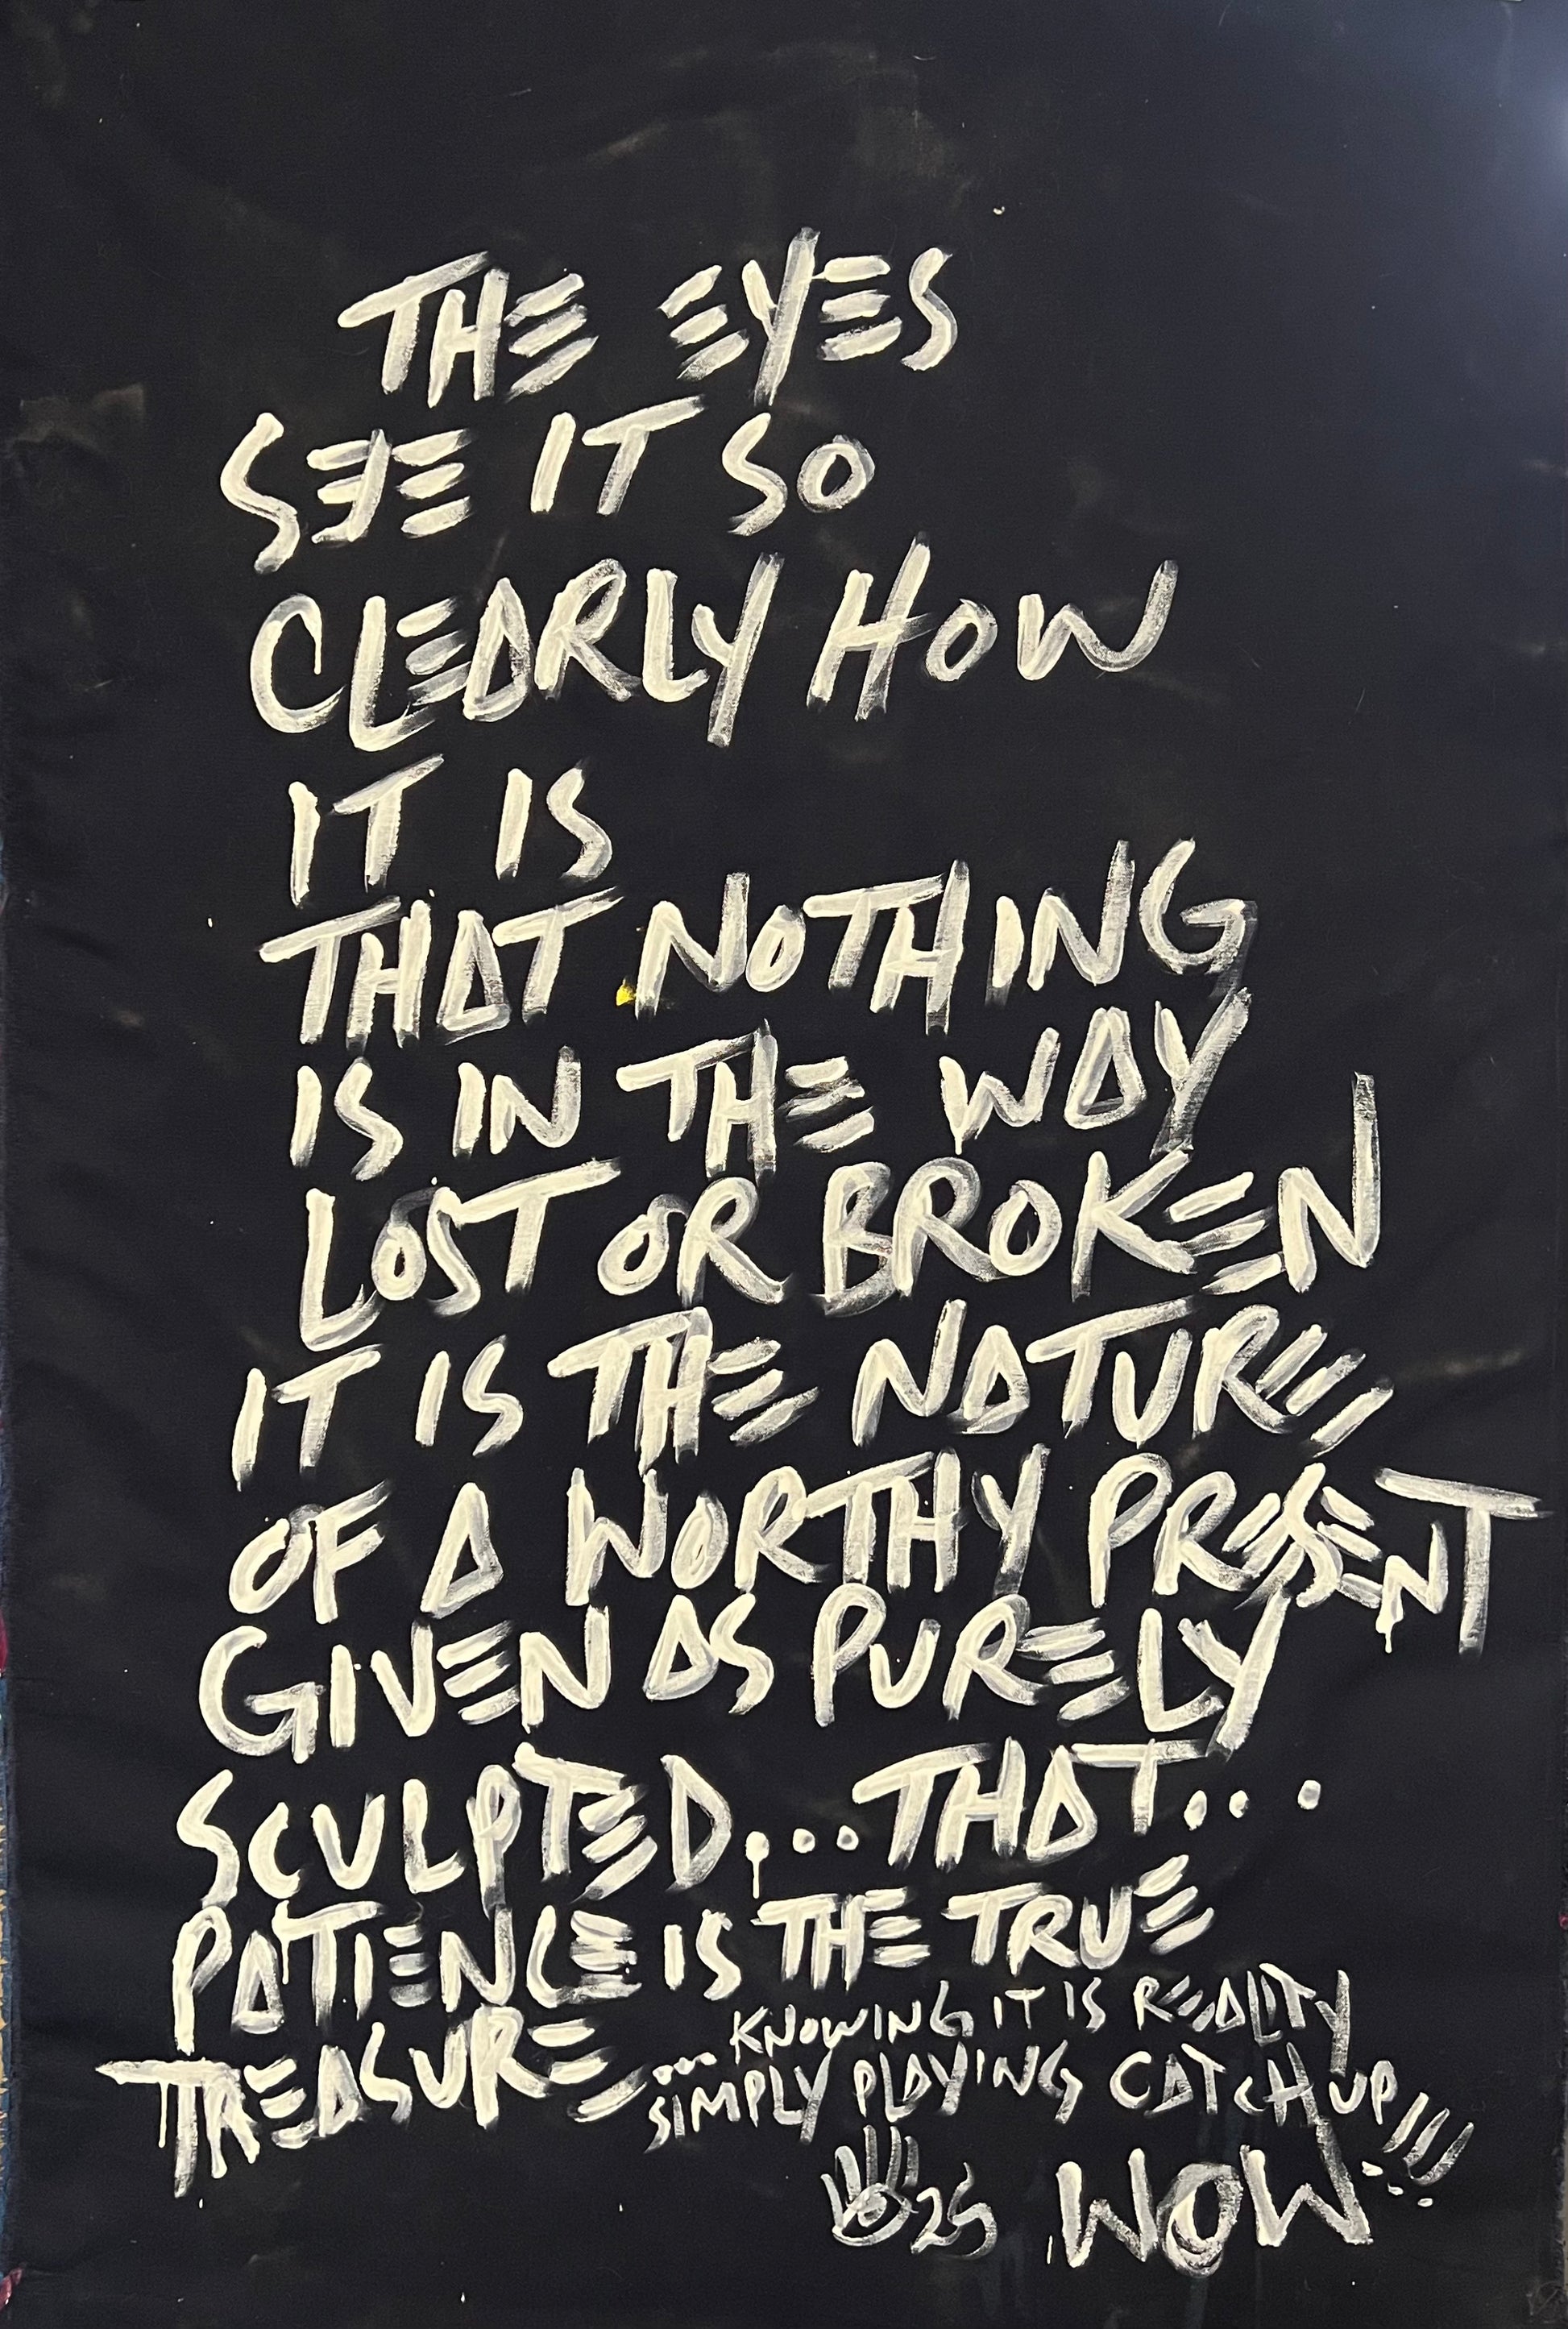 THE EYES
SEE IT SO
CLEARLY HOW
IT IS
THAT NOTHING
IS IN THE WAY
LOST OR BROKEN
IT IS THE NATURE
OF A WORTHY PRESENT
GIVEN AS PURELY
SCULPTED...THAT...
PATIENCE IS THE TRUE
TREASURE
...KNOWING IT IS REALITY
SIMPLY PLAYING CATCH UP!!!
25 WOW